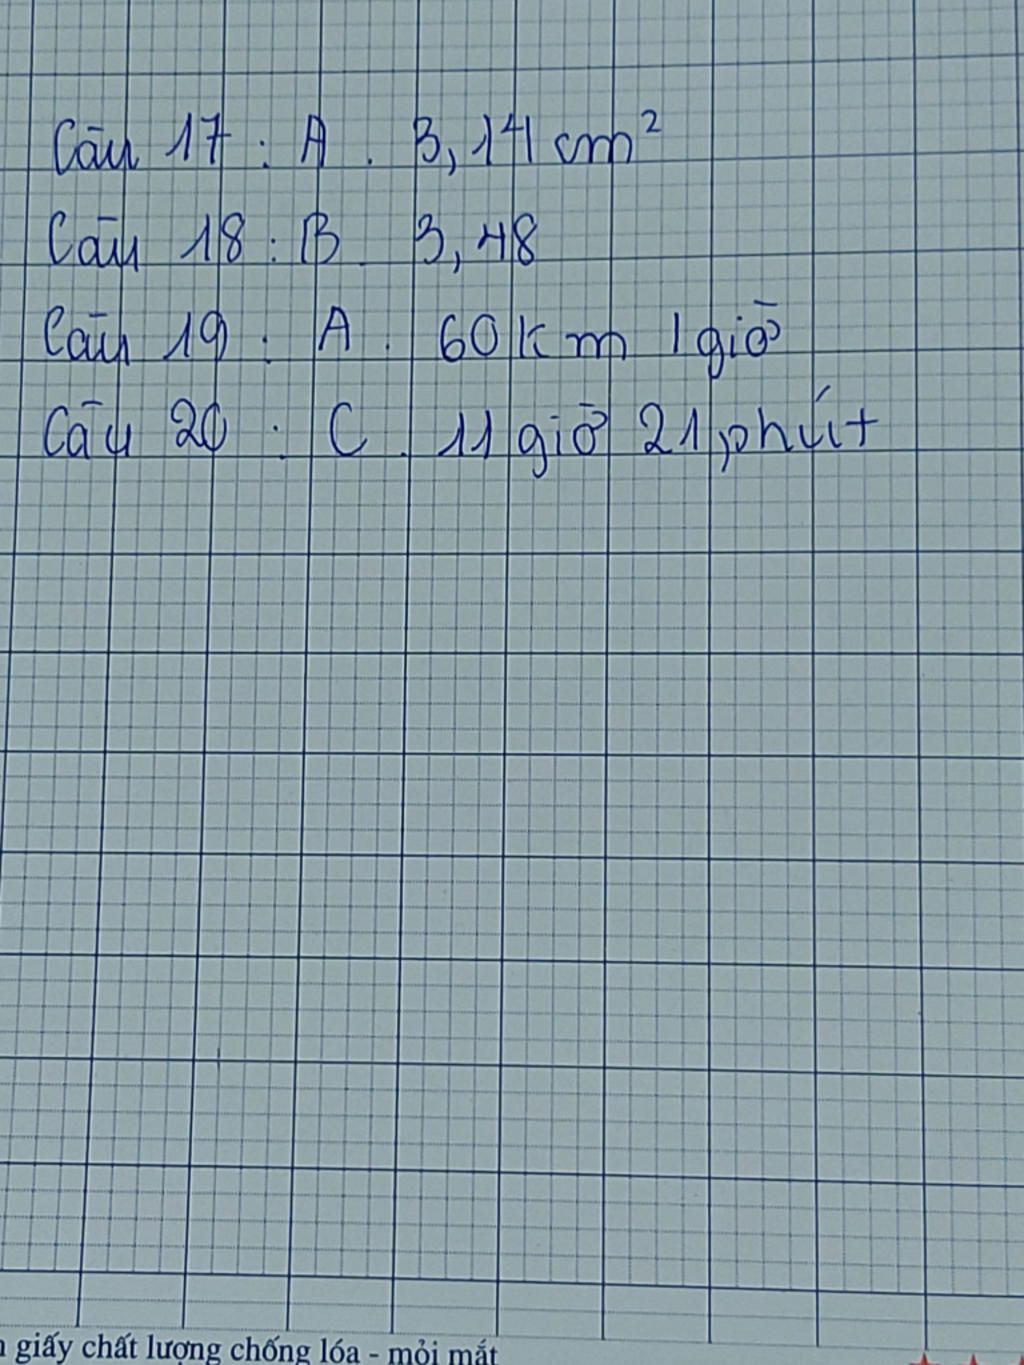 Câu 17 : A . 3,14 cm²
Câu 18 : B . 3,48
Câu 19 : A . 60km /giờ
Câu 20 : C . 11 giờ 21 phút
giấy chất lượng chống lóa - mỏi mắt